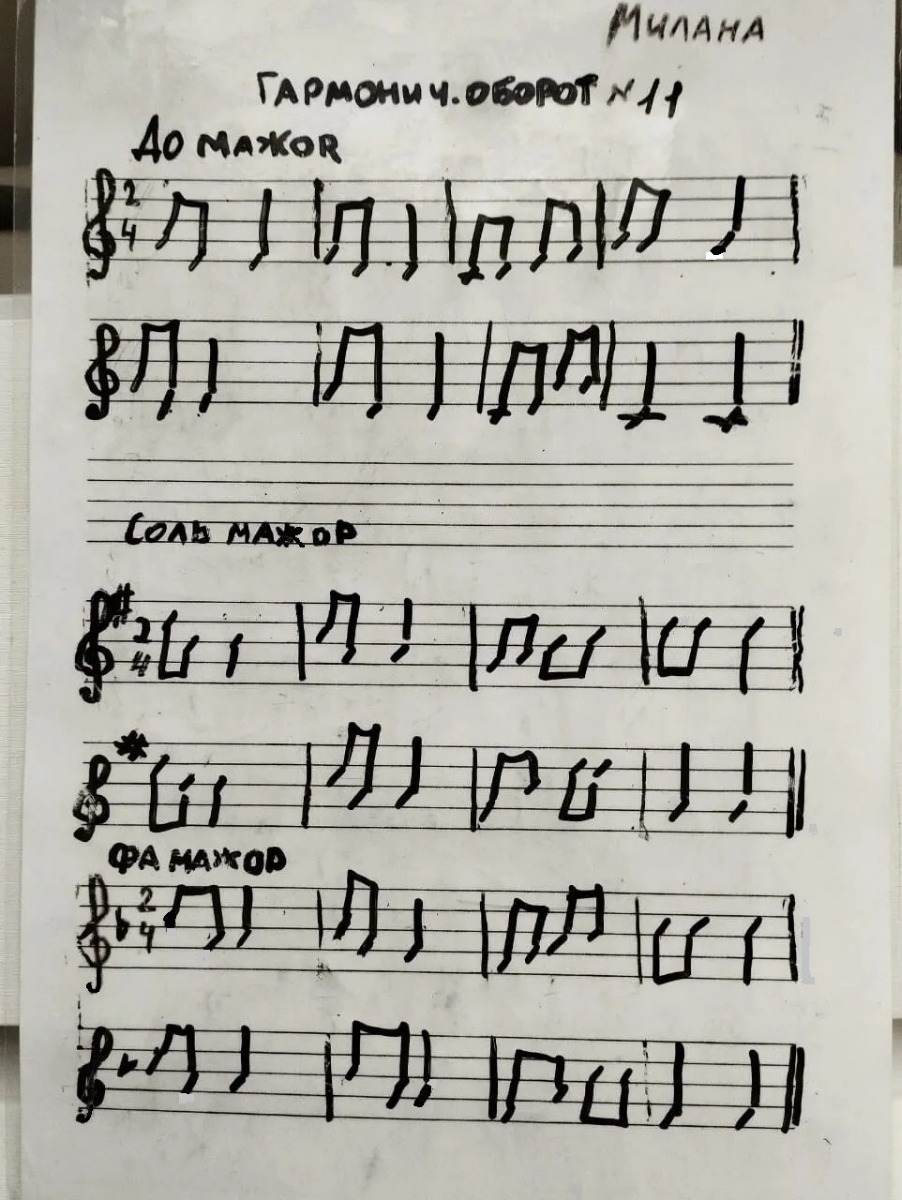 Милана
Гармонич. оборот № 11
До мажоR
2
4
Соль мажор
2
4
Фа мажор
2
4